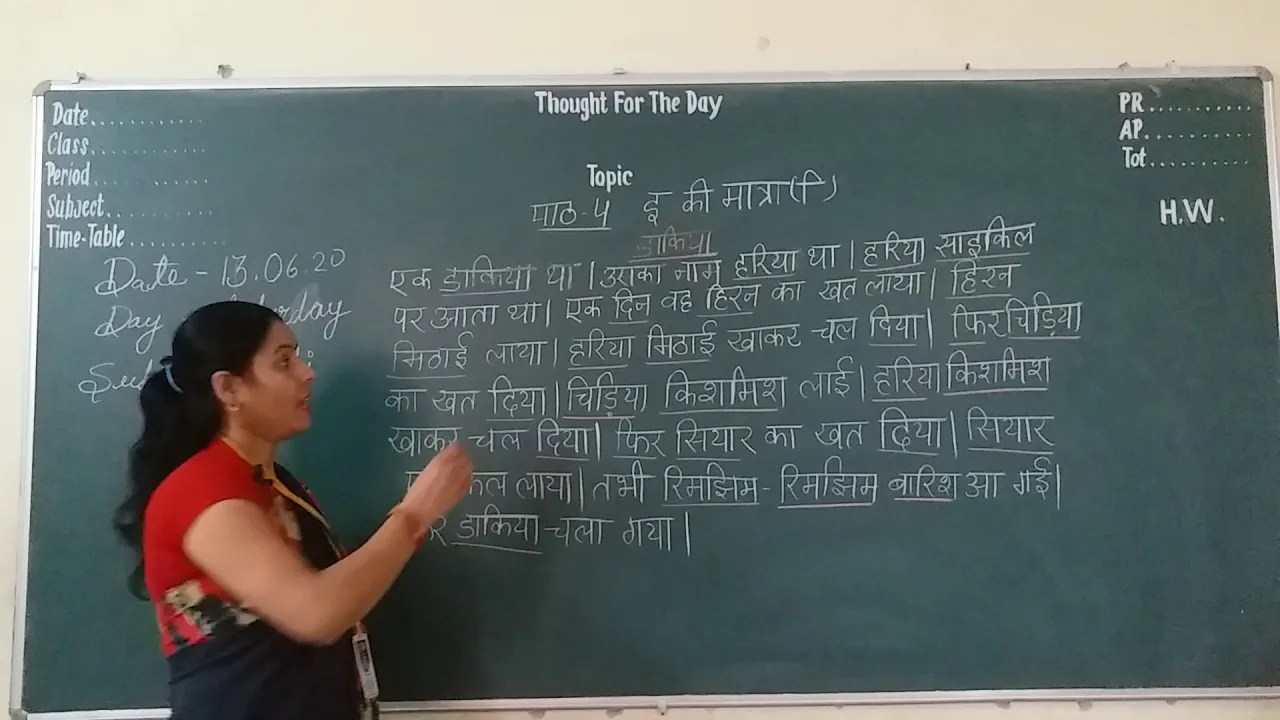 Thought For The Day
Date............
Class............
Period............
Subject............
Time-Table..........
PR...........
AP...........
Tot..........
H.W.
Topic
पाठ-4 इ की मात्रा (ि)
डाकिया
Date - 13.06.20
Day
एक डाकिया था। उसका नाम हरिया था। हरिया साइकिल
पर आता था। एक दिन वह हिरन का खत लाया। हिरन
मिठाई लाया। हरिया मिठाई खाकर चल दिया। फिर चिड़िया
का खत दिया। चिड़िया किशमिश लाई। हरिया किशमिश
खाकर चल दिया। फिर सियार का खत दिया। सियार
लाया। तभी रिमझिम - रिमझिम बारिश आ गई।
डाकिया चला गया।